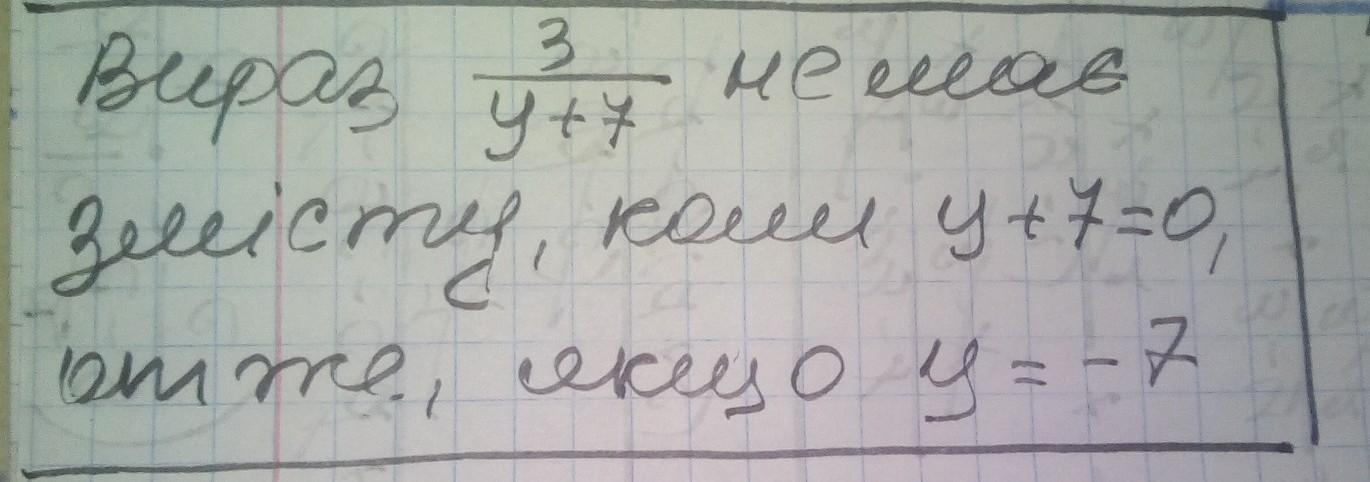 Вираз 3/(y+7) не має
змісту, коли y+7=0,
отже, якщо y=-7